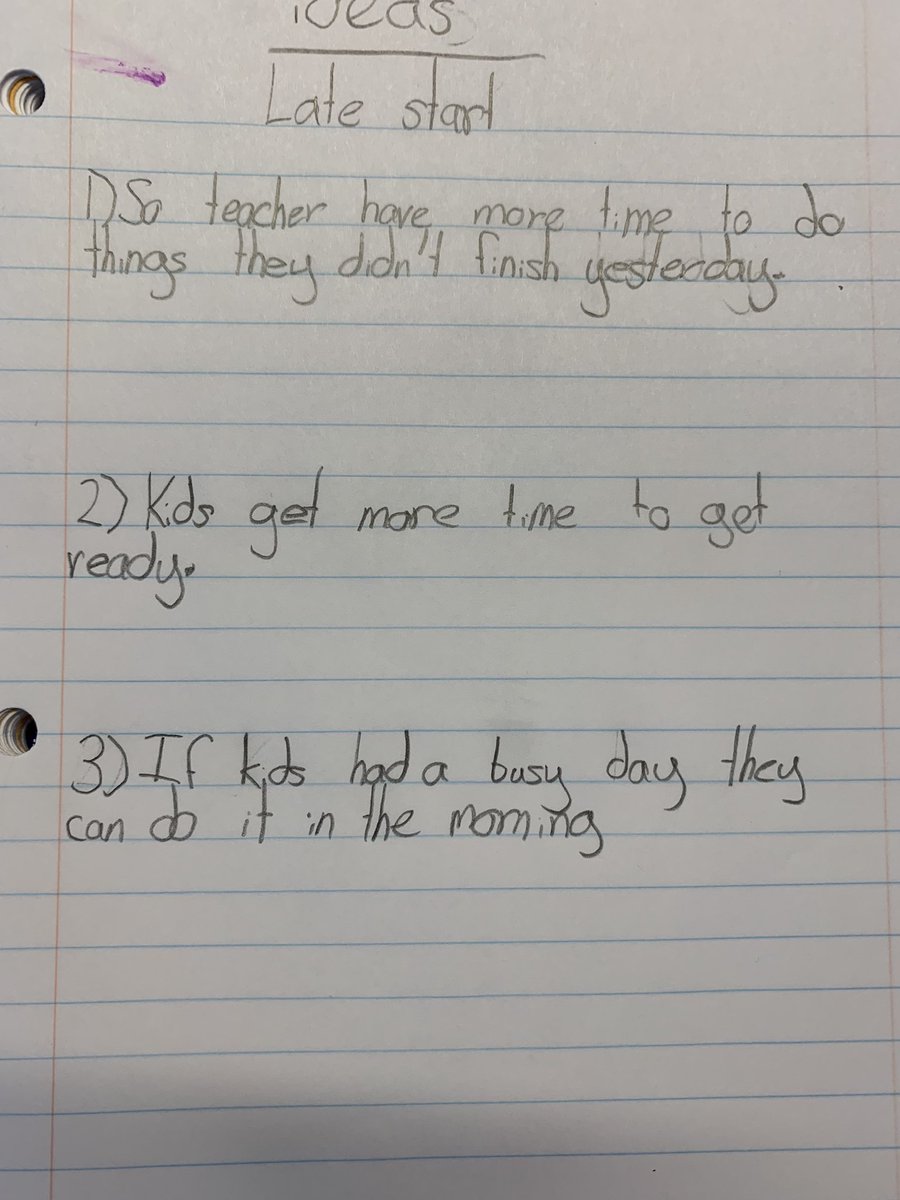 ideas
Late start
1) So teacher have more time to do
things they didn't finish yesterday.
2) Kids get more time to get
ready.
3) If kids had a busy day they
can do it in the morning